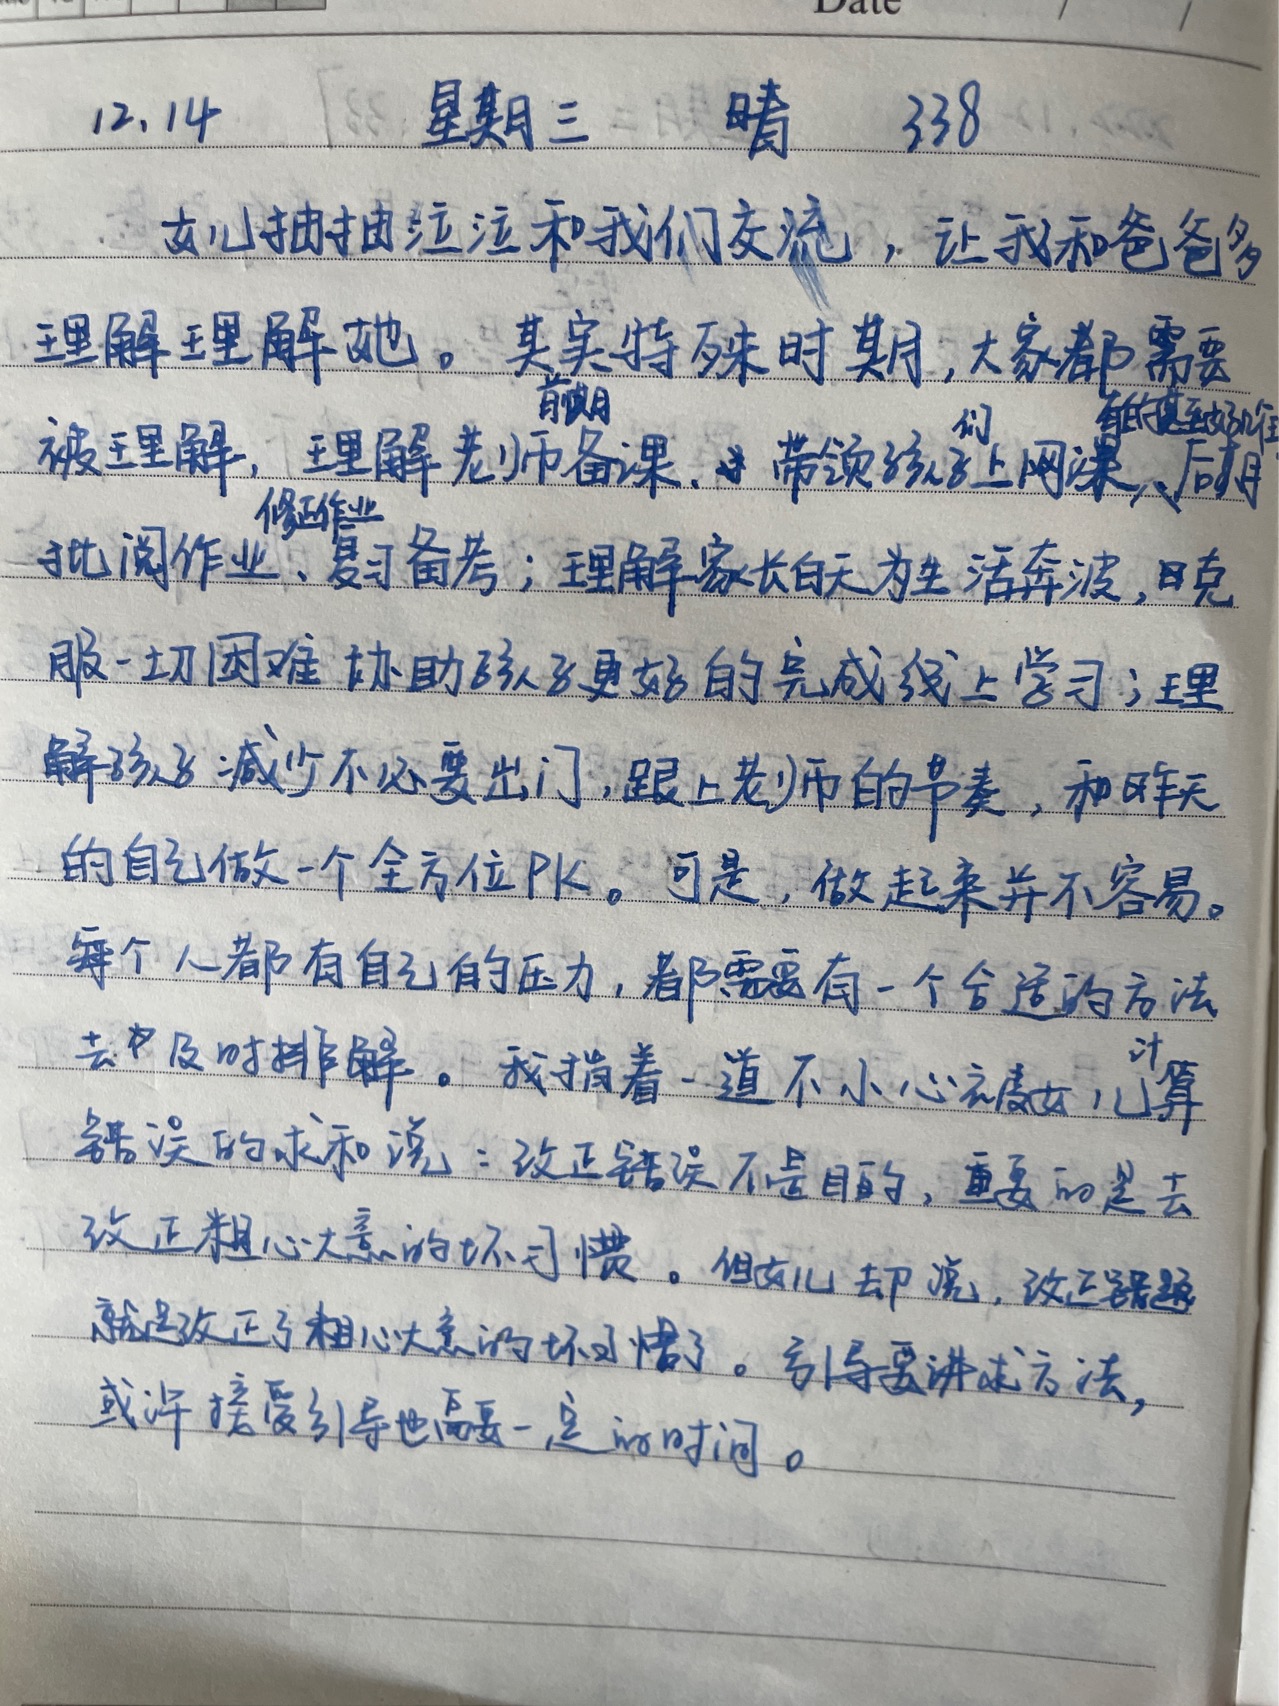 Date / /
12.14 星期三 晴 338
女儿抽抽泣泣和我们交流，让我和爸爸多
理解理解她。其实特殊时期，大家都需要
被理解，理解老师前期备课、带领孩子们上网课，后期
批阅作业、修正作业、复习备考；理解家长白天为生活奔波，克
服一切困难协助孩子更好的完成线上学习；理
解孩子减少不必要出门，跟上老师的节奏，和昨天
的自己做一个全方位PK。可是，做起来并不容易。
每个人都有自己的压力，都需要有一个合适的方法
去及时排解。我指着一道不小心被女儿计算
错误的求和说：改正错误不是目的，重要的是去
改正粗心大意的坏习惯。但女儿却说，改正错题
就是改正了粗心大意的坏习惯了。引导要讲求方法，
或许接受引导也需要一定的时间。